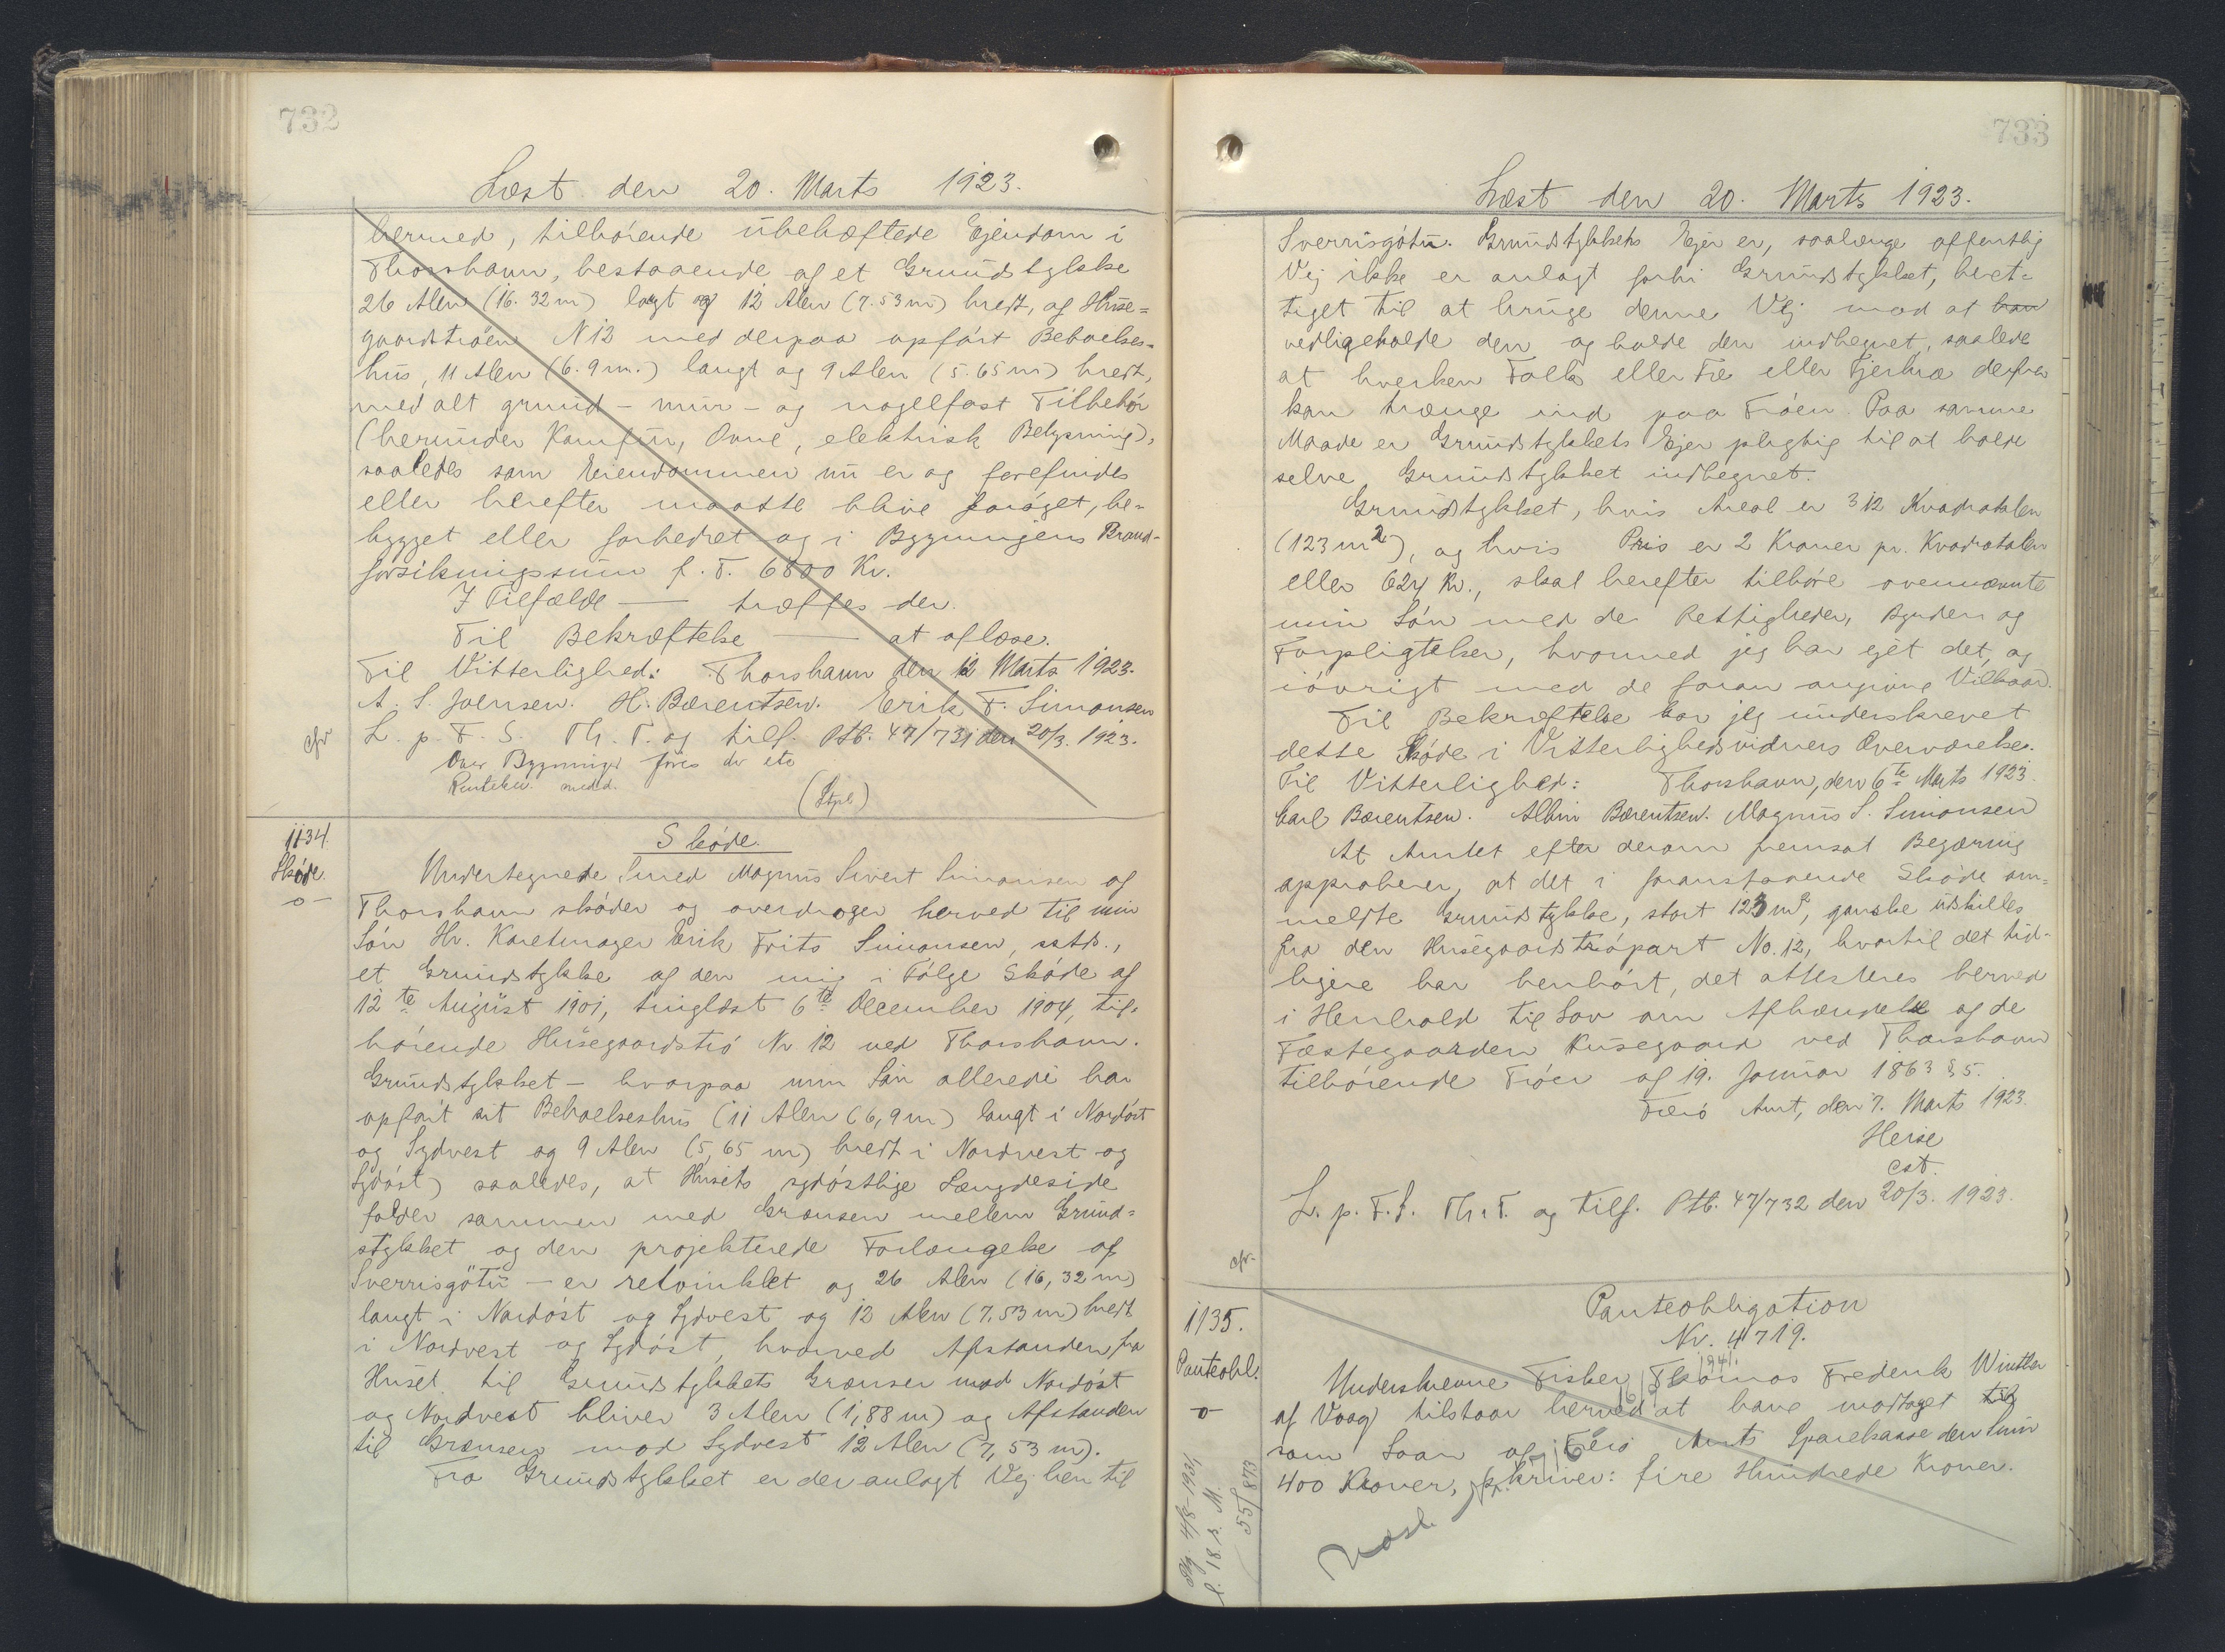 732
Læst den 20. Marts 1923.
hermed, tilhørende übehæftede Ejendom i
Thorshavn, bestaaende af et Grundstykke
26 Alen (16.32 m) langt og 12 Alen (7.53 m) bredt, af Huse-
gaardstrøen N 12 med derpaa opført Beboelses-
hus, 11 Alen (6.9 m.) langt og 9 Alen (5.65 m) bredt,
med alt grund- mur- og nagelfast Tilbehør
(herunder Komfur, Ovne, elektrisk Belysning),
saaledes som Eiendommen nu er og forefindes
eller herefter maatte blive forøget, be-
bygget eller forbedret og i Bygningens Brand-
forsikringssum f. T. 6800 Kr.
I Tilfælde — træffes der.
Til Bekræftelse — at aflæse.
Til Vitterlighed: Thorshavn den 12 Marts 1923.
A. S. Joensen. H. Bærentsen. Erik F. Simonsen
cfr L. p. F. S. Th. T. og tilf. Ptb. 47/731 den 20/3. 1923.
Over Bygninger føres der etc
medd.
(Stpl.)
1134.
Skøde.
-o-
Skøde.
Undertegnede Smed Magnus Sivert Simonsen af
Thorshavn skøder og overdrager herved til min
Søn Hr. Karetmager Erik Frits Simonsen, sstds.,
et Grundstykke af den mig i Følge Skøde af
12te August 1901, tinglæst 6te December 1904, til-
hørende Husegaardstrø Nr 12 ved Thorshavn.
Grundstykket - hvorpaa min Søn allerede har
opført sit Beboelseshus (11 Alen (6,9 m) langt i Nordøst
og Sydvest og 9 Alen (5,65 m) bredt i Nordvest og
Sydøst) saaledes, at Husets sydøstlige Længdeside
falder sammen med Grænsen mellem Grund-
stykket og den projekterede Forlængelse af
Sverrisgøtu - er retvinklet og 26 Alen (16,32 m)
langt i Nordøst og Sydvest og 12 Alen (7,53 m) bredt
i Nordvest og Sydøst, hvorved Afstanden fra
Huset til Grundstykkets Grænser mod Nordøst
og Nordvest bliver 3 Alen (1,88 m) og Afstanden
til Grænsen mod Sydvest 12 Alen (7,53 m).
Fra Grundstykket er der anlagt Vej hen til
733
Læst den 20. Marts 1923.
Sverrisgøtu. Grundstykkets Ejer er, saalænge offentlig
Vej ikke er anlagt forbi Grundstykket, beret-
tiget til at bruge denne Vej mod at han
vedligeholde den og holde den indhegnet, saalede
at hverken Folk eller Fæ eller Fjerkræ derfra
kan trænge ind paa Trøen. Paa samme
Maade er Grundstykkets Ejer pligtig til at holde
selve Grundstykket indhegnet.
Grundstykket, hvis Areal er 312 Kvadratalen
(123 m2), og hvis Pris er 2 Kroner pr. Kvadratalen
eller 624 Kr., skal herefter tilhøre ovennævnte
min Søn med de Rettigheder, Byrder og
Forpligtelser, hvormed jeg har ejet det, og
iøvrigt med de foran angivne Vilkaar.
Til Bekræftelse har jeg underskrevet
dette Skøde i Vitterlighedsvidners Overværelse.
Til Vitterlighed: Thorshavn, den 6te Marts 1923.
Carl Bærentsen. Albin Bærentsen. Magnus S. Simonsen
At Amtet efter derom fremsat Begæring
approberer, at det i foranstaaende Skøde om-
meldte Grundstykke, stort 123 m2, ganske udskilles
fra den Husegaards trøpart No. 12, hvortil det tid-
ligere har henhørt, det attesteres herved
i Henhold til Lov om Afhændelse af de
Fæstegaarden Husegaard ved Thorshavn
tilhørende Trøer af 19. Januar 1863 § 5.
Færø Amt, den 7. Marts 1923.
Heise
cst.
L. p. F. S. Th. T. og tilf. Ptb. 47/732 den 20/3. 1923.
cfr.
1135.
Panteobl.
-o-
Panteobligation
Nr. 4719.
Underskrevne Fisker Thomas Frederik Winther
af Vaag tilstaar herved at have modtaget til
som Laan af Færø Amts Sparekasse den Sum
400 Kroner, skriver: fire Hundrede Kroner.
1941.
55/873